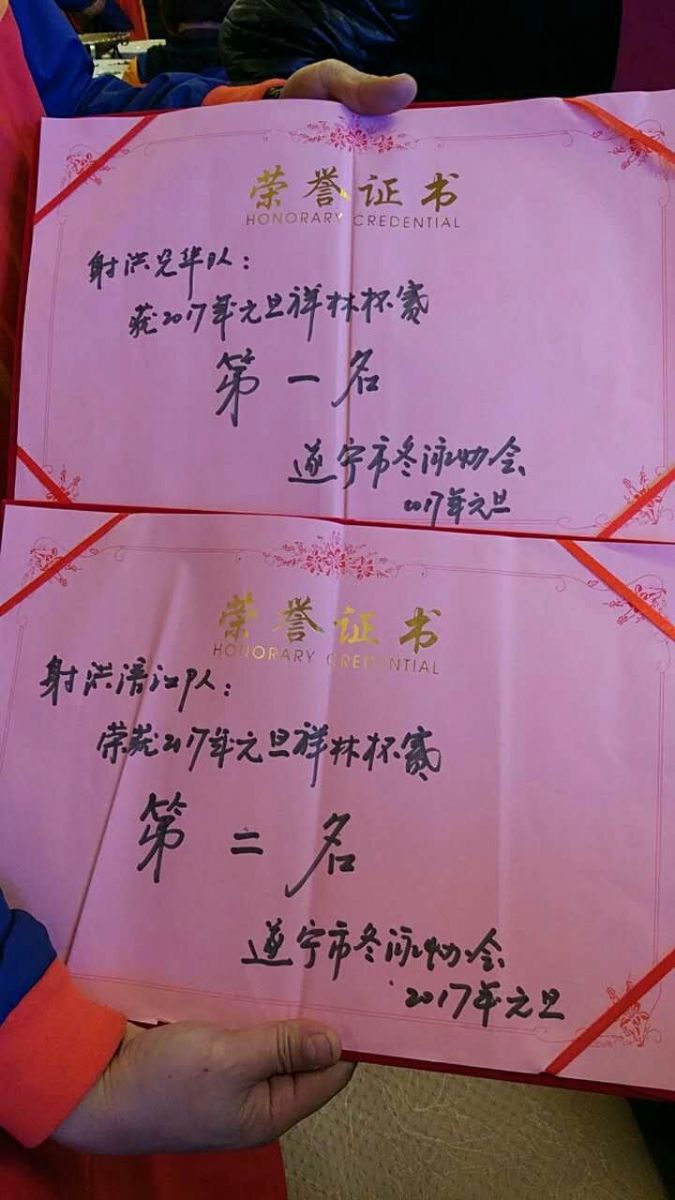 荣誉证书
HONORARY CREDENTIAL
射洪兄华队：
获2017年元旦祥林杯赛
第一名
遂宁市冬泳协会
2017年元旦
荣誉证书
HONORARY CREDENTIAL
射洪涪江队：
荣获2017年元旦祥林杯赛
第二名
遂宁市冬泳协会
2017年元旦